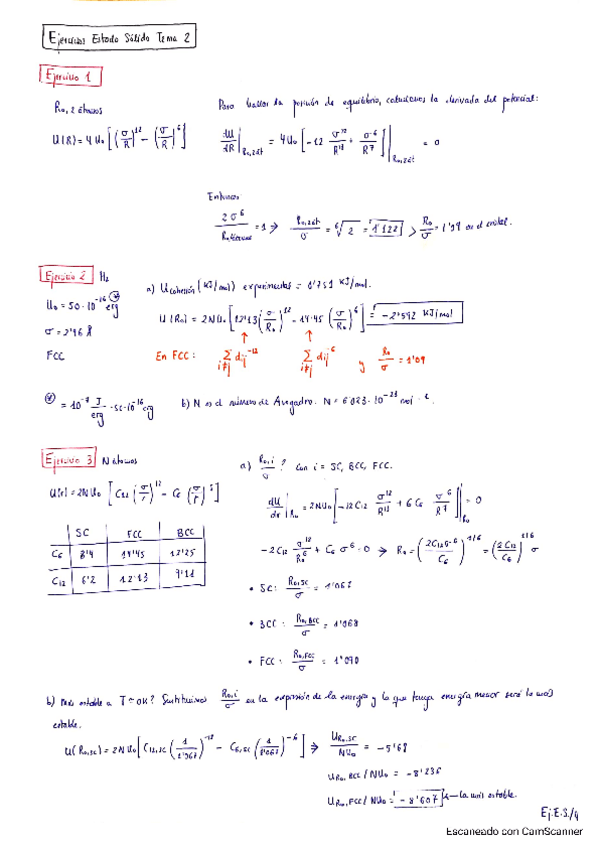 Ejercicios Estado Sólido Tema 2
Ejercicio 1
R₀, 2 átomos
U(R) = 4U₀ [(σ/R)¹² - (σ/R)⁶]
Para hallar la posición de equilibrio, calculamos la derivada del potencial:
dU/dR |R₀,2át = 4U₀ [-12 σ¹²/R¹³ + σ⁶/R⁷] |R₀,2át = 0
Entonces
2σ⁶/R₀ = 1 → R₀,2át/σ = ⁶√2 = 1'122 > R₀/σ = 1'09 en el cristal.
Ejercicio 2 H₂
U₀ = 50·10⁻¹⁶ erg
σ = 2'96 Å
FCC
a) Ucohesión (kJ/mol) experimental = 0'751 kJ/mol.
U(R₀) = 2NU₀ [12'13 (σ/R₀)¹² - 14'45 (σ/R₀)⁶] = -2'592 kJ/mol
En FCC: Σ i≠j dij⁻¹² Σ i≠j dij⁻⁶ y R₀/σ = 1'09
* = 10⁻⁷ J/erg · 50·10⁻¹⁶ erg
b) N es el número de Avogadro. N = 6'023·10⁻²³ mol⁻¹.
Ejercicio 3 N átomos
U(r) = 2NU₀ [C₁₂ (σ/r)¹² - C₆ (σ/r)⁶]
SC FCC BCC
C₆ 8'4 14'45 12'25
C₁₂ 6'2 12'13 9'11
a) R₀,i/σ ? con i = SC, BCC, FCC.
dU/dr |R₀ = 2NU₀ [-12C₁₂ σ¹²/R¹³ + 6C₆ σ⁶/R⁷] |R₀ = 0
-2C₁₂ σ¹²/R₀⁶ + C₆ σ⁶ = 0 → R₀ = (2C₁₂σ⁶/C₆)^1/6 = (2C₁₂/C₆)^1/6 σ
• SC: R₀,SC/σ = 1'067
• BCC: R₀,BCC/σ = 1'068
• FCC: R₀,FCC/σ = 1'090
b) Más estable a T=0K? Sustituimos R₀,i/σ en la expresión de la energía y la que tenga energía menor será la más
estable.
U(R₀,SC) = 2NU₀ [C₁₂,SC (1/1'067)⁻¹² - C₆,SC (1/1'067)⁻⁶] → UR₀,SC/NU₀ = -5'68
UR₀,BCC/NU₀ = -8'236
UR₀,FCC/NU₀ = -8'607 ← la más estable.
Ej.E.S./4
Escaneado con CamScanner